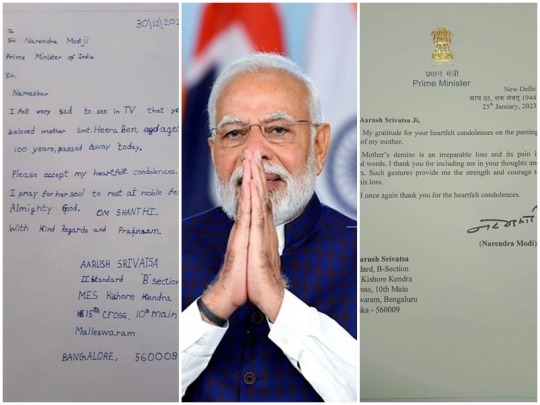 30/12/202
To
Sri Narendra Modiji
Prime Minister of India
Sir,
Namaskar
I felt very sad to see in TV that
beloved mother Smt. Heera Ben, aged
100 years, passed away today.
Please accept my heartfelt condolences.
I pray for her soul to rest at noble
Almighty God. OM SHANTHI.
With Kind Regards and
AARUSH SRIVATSA
II Standard 'B' Section
MES Kishore Kendra
15th Cross, 10th main
Malleswaram
BANGALORE, 560009
प्रधान मंत्री
Prime Minister
New Delhi
05, शक संवत् 1944
25th January, 2023
Aarush Srivatsa Ji,
My gratitude for your heartfelt condolences on the passing
of my mother.
Mother's demise is an irreparable loss and its pain i
d words. I thank you for including me in your thoughts and
s. Such gestures provide me the strength and courage t
his loss.
I once again thank you for the heartfelt condolences.
(Narendra Modi)
arush Srivatsa
dard, B-Section
Kishore Kendra
ross, 10th Main
swaram, Bengaluru
aka - 560009